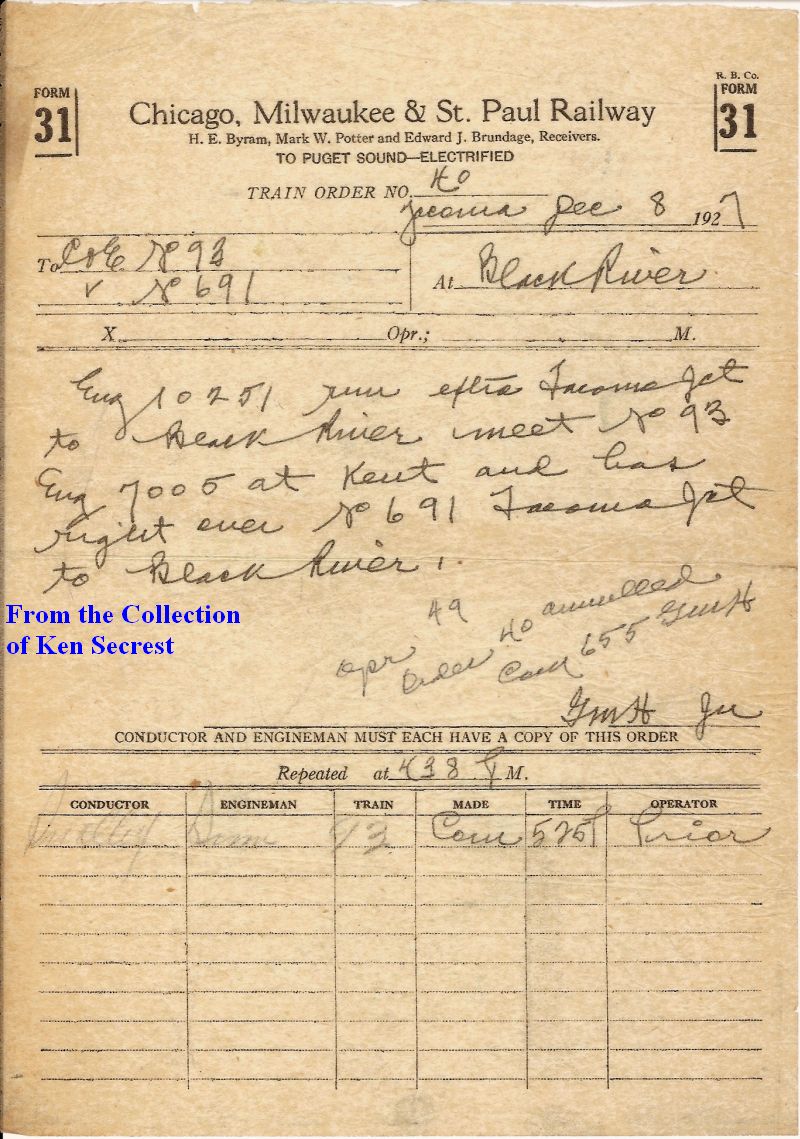 R. B. Co.
FORM 31
FORM 31
Chicago, Milwaukee & St. Paul Railway
H. E. Byram, Mark W. Potter and Edward J. Brundage, Receivers.
TO PUGET SOUND—ELECTRIFIED
TRAIN ORDER NO. 40
Tacoma Dec 8 1927
To C&E No 93
No 691
At Black River
X Opr.; M.
Eng 10251 run extra Tacoma Jct
to Black River meet No 93
Eng 7005 at Kent and has
right over No 691 Tacoma Jct
to Black River.
Opr 49
Order 40 annulled
Com 655 GMH
GMH
CONDUCTOR AND ENGINEMAN MUST EACH HAVE A COPY OF THIS ORDER
Repeated at 438 P M.
CONDUCTOR ENGINEMAN TRAIN MADE TIME OPERATOR
93 Com 525P Prior
From the Collection
of Ken Secrest